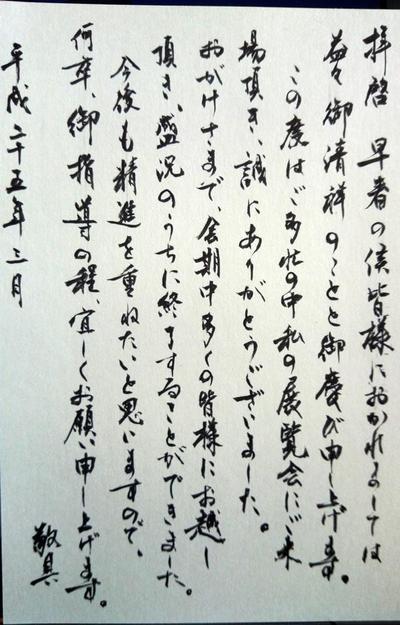 拝啓 早春の候皆様におかれましては
益々御清祥のことと御慶び申し上げます。
この度はご多忙の中私の展覧会にご来
場頂き、誠にありがとうございました。
おかげさまで、会期中多くの皆様にお越し
頂き、盛況のうちに終了することができました。
今後も精進を重ねたいと思いますので、
何卒、御指導の程、宜しくお願い申し上げます。
敬具
平成二十五年三月